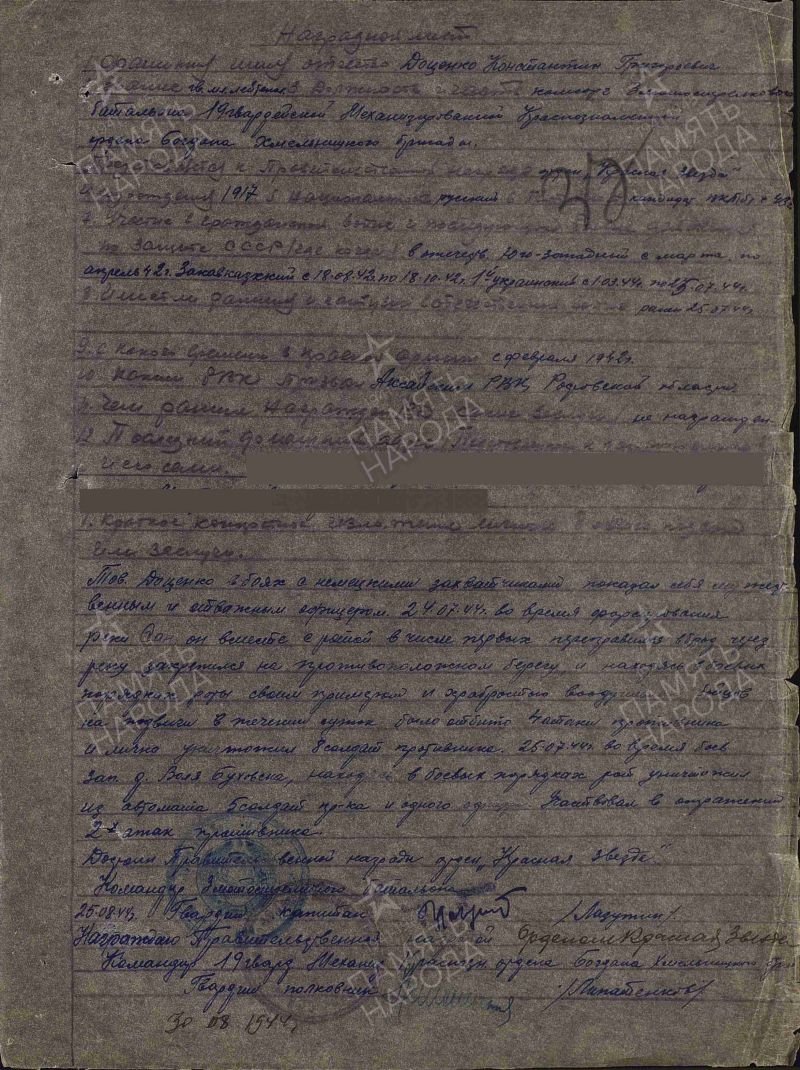 Наградной лист
1. Фамилия имя отчество Доценко Константин Григорьевич
звание гв. мл. лейтенант 3. Должность часть комсорг мотострелкового
батальона 19 гвардейской Механизированной Краснознаменной
ордена Богдана Хмельницкого бригады.
к Правительственной награде орден "Красная звезда"
рождения 1917 5. Национальность русский кандидат ВКП(б) с
7. Участие в гражданской войне и последующих
по защите СССР (где когда) в отечеств. Юго-западный с марта по
апрель 42 г. Закавказский с 18.08.42 по 18.10.42. 1й украинский с 1.03.44г. по 25.07.44г.
8. Имеет ли ранения и контузии в отечественной войне ранен 25.07.44г.
9. С какого времени в красной армии с февраля 1942г.
10. Каким РВК призван Аксайским РВК, Ростовской области.
11. Чем раннее награжден за какие заслуги не награжден
12. адрес
и его семьи.
1. Краткое конкретное изложение личного боевого подвига
или заслуги.
Тов. Доценко в боях с немецкими захватчиками показал себя мужест-
венным и отважным офицером. 24.07.44г. во время форсирования
реки Сан он вместе с ротой в числе первых переправился вброд через
реку закрепился на противоположном берегу, и находясь в боевых
порядках роты своим примером и храбростью воодушевлял бойцов
на подвиги в течении суток было отбито 4 атаки противника
и лично уничтожил 8 солдат противника. 25.07.44г. во время боев
зап. д. Воля Буховска, находясь в боевых порядках рот уничтожил
из автомата 5 солдат пр-ка и одного офицера Участвовал в отражении
2-х атак противника.
Достоин Правительственной награды орден "Красная звезда".
Командир мотострелкового батальона
25.08.44г. Гвардии капитан /Лазуткин/
Награждаю Правительственной наградой Орденом Красная Звезда
Командир 19 гвард. Механиз. Краснозн. ордена Богдана Хмельницкого бриг
Гвардии полковник /Липатенков/
30 08 1944г
ПАМЯТЬ
НАРОДА
ПАМЯТЬ
НАРОДА
ПАМЯТЬ
НАРОДА
ПАМЯТЬ
НАРОДА
ПАМЯТЬ
НАРОДА
ПАМЯТЬ
НАРОДА